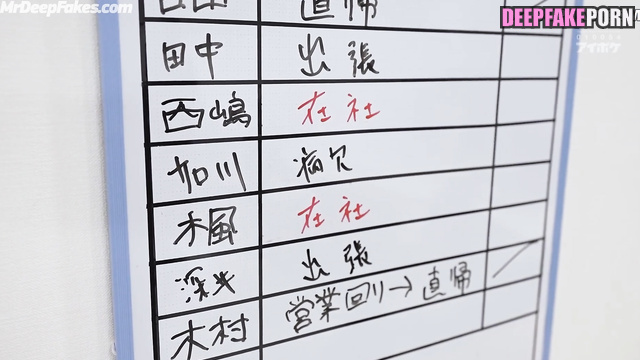 MrDeepFakes.com
DEEPFAKEPORN
アイポケ
直帰
田中 出張
西嶋 在社
加川 病欠
楓 在社
深井 出張
木村 営業回り→直帰